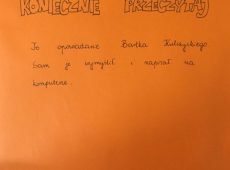 KONIECZNIE PRZECZYTAJ
To opowiadanie Bartka
Sam je wymyślił i napisał na
komputerze.